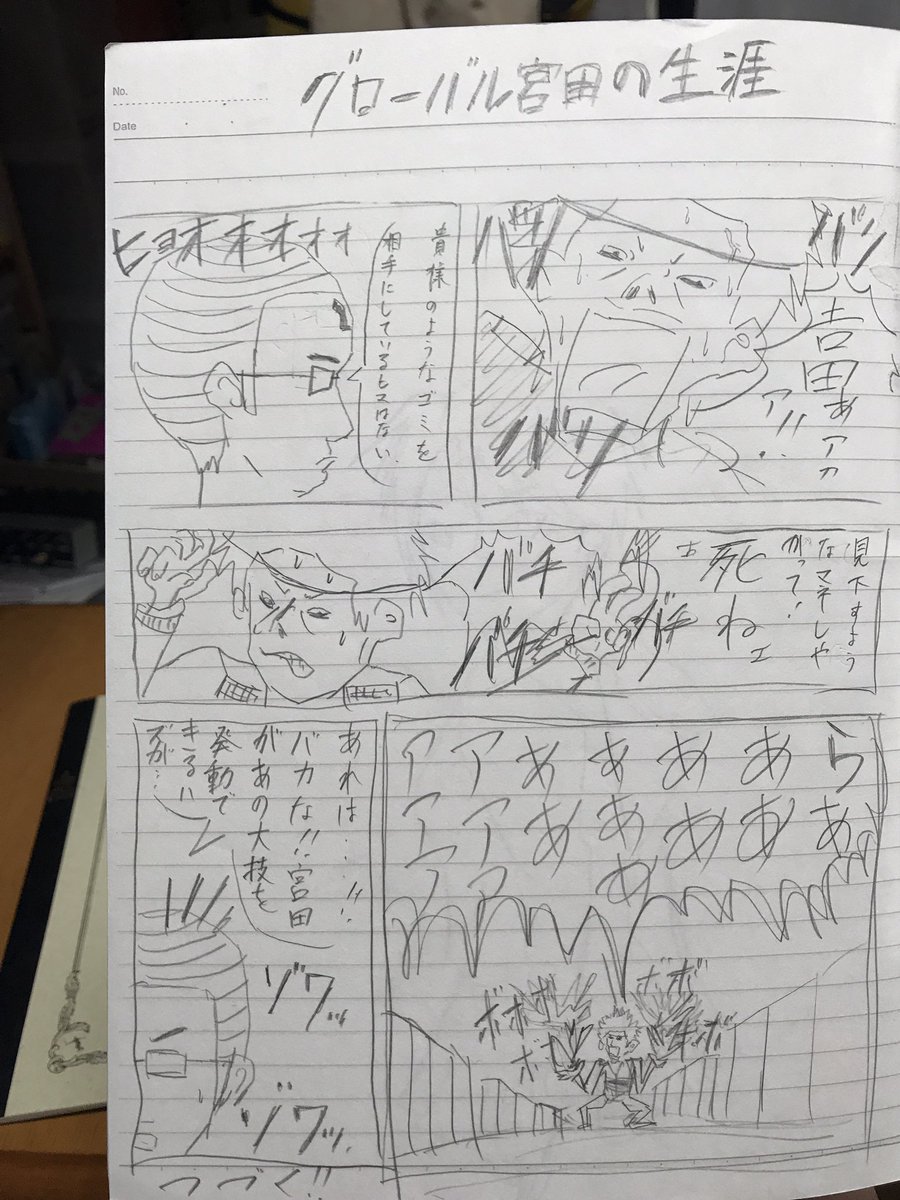 No.
Date
グローバル宮田の生涯
バン
吉田ぁアァ
ァ!!
貴様のようなゴミを
相手にしているヒマはない
ヒョオオオォォ
見下すよう
なマネしや
がって!
死ねェ
ガチ
バチ
バチ
らぁあああアア
あああああアエ
あアア
ボボ
ボボ
ボボボ
ボ
あれは…!!
バカな!!宮田
があの大技を
発動で
きるハ
ズが…
ゾワッ
ゾワッ
つづく!!